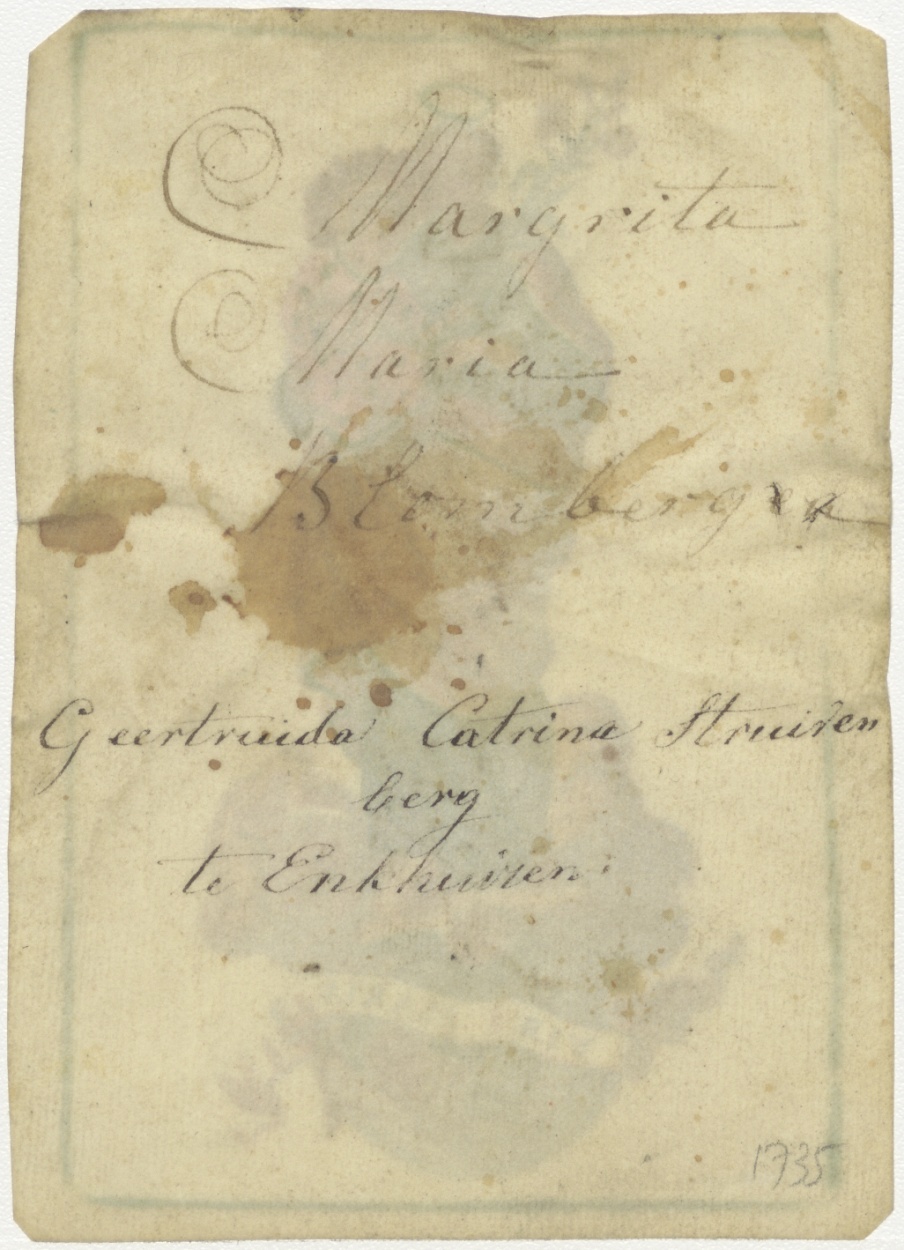 Margrita
Maria
Blomberg
Geertruida Catrina Struiven
berg
te Enkhuizen
1735